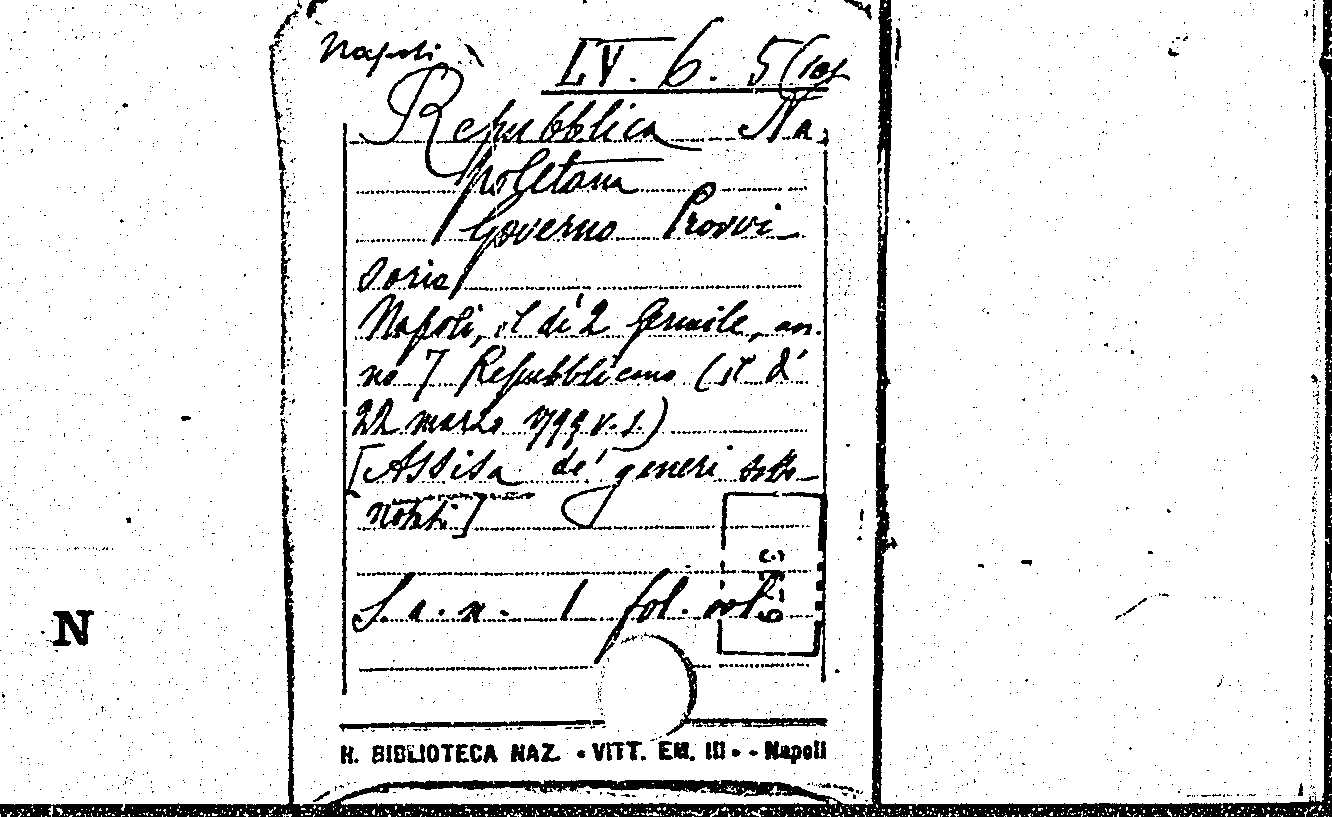 Napoli
LV. 6. 5
Repubblica Na
poletana
Governo Provvi
sorio
Napoli, il dì 2 Germile, an.
no 7 Repubblicano (il dì
22 marzo 1799 v. s.)
[Assisa de' generi sotto-
notati]
S. a. n. 1 fol. vol.
N
R. BIBLIOTECA NAZ. • VITT. EM. III • - Napoli